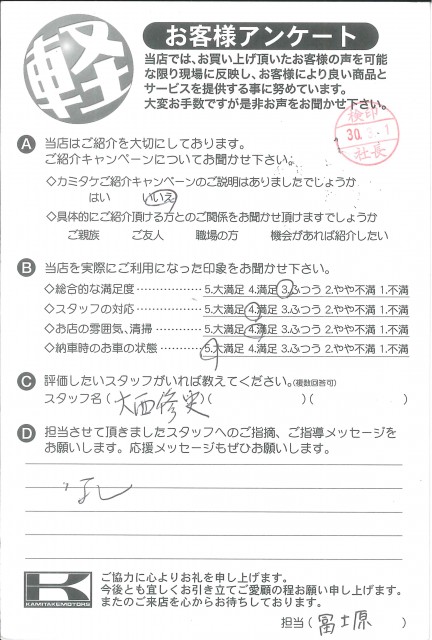 軽
お客様アンケート
当店では、お買い上げ頂いたお客様の声を可能
な限り現場に反映し、お客様により良い商品と
サービスを提供する事に努めています。
大変お手数ですが是非お声をお聞かせ下さい。
検印
30.3.1
社長
A 当店はご紹介を大切にしております。
ご紹介キャンペーンについてお聞かせ下さい。
◇カミタケご紹介キャンペーンのご説明はありましたでしょうか
はい いいえ
◇具体的にご紹介頂ける方とのご関係をお聞かせ頂けますでしょうか
ご親族 ご友人 職場の方 機会があれば紹介したい
B 当店を実際にご利用になった印象をお聞かせ下さい。
◇総合的な満足度 ……………… 5.大満足 4.満足 3.ふつう 2.やや不満 1.不満
◇スタッフの対応 ……………… 5.大満足 4.満足 3.ふつう 2.やや不満 1.不満
◇お店の雰囲気、清掃 ………… 5.大満足 4.満足 3.ふつう 2.やや不満 1.不満
◇納車時のお車の状態 ………… 5.大満足 4.満足 3.ふつう 2.やや不満 1.不満
C 評価したいスタッフがいれば教えてください。(複数回答可)
スタッフ名 ( 大西修史 ) ( )
D 担当させて頂きましたスタッフへのご指摘、ご指導メッセージを
お願いします。応援メッセージもぜひお願いします。
なし
K
KAMITAKEMOTORS
ご協力に心よりお礼を申し上げます。
今後とも宜しくお引き立てご愛顧の程お願い申し上げます。
またのご来店を心からお待ちしております。
担当 ( 冨士原 )